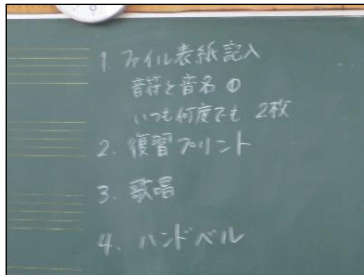 1. ファイル表紙記入
音符と音名①
いつも何度でも 2枚
2. 復習プリント
3. 歌唱
4. ハンドベル